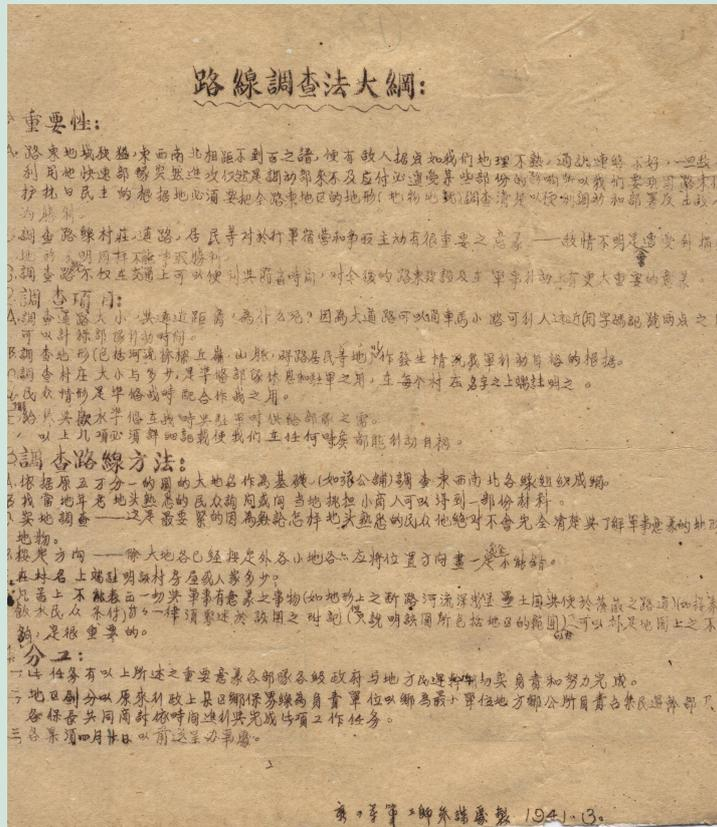 路線調查法大綱:
重要性:
A.路東地域狹猛,東西南北相距不到百之譜,便有敵人据点如我們地理不熟,通訊連絡不好,一旦敌
利用他快速部隊突然進攻仅然是調動部來不及应付必遭受某些部份的
护抗日民主的根据地必須要把全路東地区的地形(地物地貌)調查清楚以便利調动和部署反主攻
为勝利。
調查路線村莊,道路,居民等对於行軍宿营和争取主动有很重要之意義——敌情不明是會遭受到損
地形不明同样不能争取勝利
調查路不仅在交通上可以便利与節省時間,对今後的路東建設及在軍事行动上有更大重要的意義。
調查項目:
A.調查道路大小,与遠近距离,為什么呢?因為大道路可以通車馬小路可行人遠近用字碼記號两点之
可以計祘部隊行动時間。
B.調查地形(包括河流 丘嶺,山脈,路居民等地 作發生情况我軍行动 的根据。
調查村庄大小与多少,是準俻部隊休息和駐軍之用,在每个村庄名字之上端註明之。
民众情形是準俻战時配合作战之用。
飲水準俻在战時与駐軍時供給部隊之需。
以上几項必須詳細記載使我們在任何時候都能行动自裕。
調查路線方法:
A.依据原五万分一的圖的大地名作為基礎,(如張公舖)調查東西南北各線組織成網。
B.找當地年老地头熟悉的民众詢问或问当地挑担小商人可以得到一部份材料。
实地調查——这是最要緊的因為無論怎样地头熟悉的民众他絕对不會完全清楚与了解軍事意義的地形
地物。
按定方向——除大地名已經按定外各小地名亦应將位置方向畫一定不能錯。
在村名上端註明該村房屋或人家多少?
凡畧上不能表示一切与軍事有意義之事物(如地形上之断路河流深 土圍与便於荫蔽之路道)(
飲水民众条件)等一律須叙述於該圖之附記(只說明該圖所包括地区的範圍)可以補足地圖上之不
夠,是很重要的。
分工:
一、此任务有以上所述之重要意義各部隊各級政府与地方民運幹部与实負責和努力完成。
二、地区劃分以原來行政上县区鄉保界線為負責單位以鄉為最小單位地方鄉公所負責召集民運幹部及
各保長共同商討依時間進行与完成此項工作任务。
三、各業須四月廿日以前送呈办事處。
新四軍第二師参謀處製 1941.3。